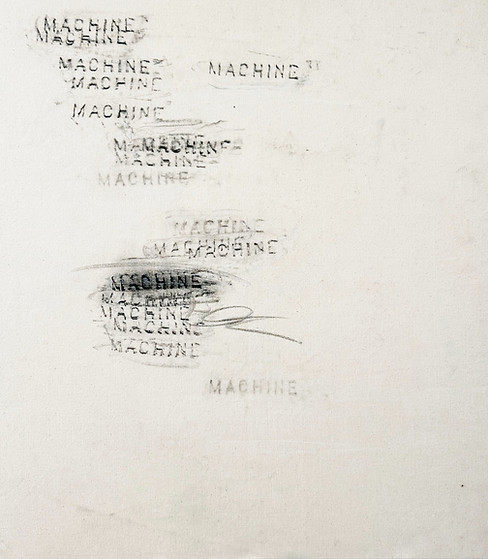 MACHINE
MACHINE
MACHINE MACHINE
MACHINE
MACHINE
MACHINE MACHINE
MACHINE
MACHINE
MACHINE
MACHINE MACHINE
MACHINE
MACHINE
MACHINE
MACHINE
MACHINE
MACHINE